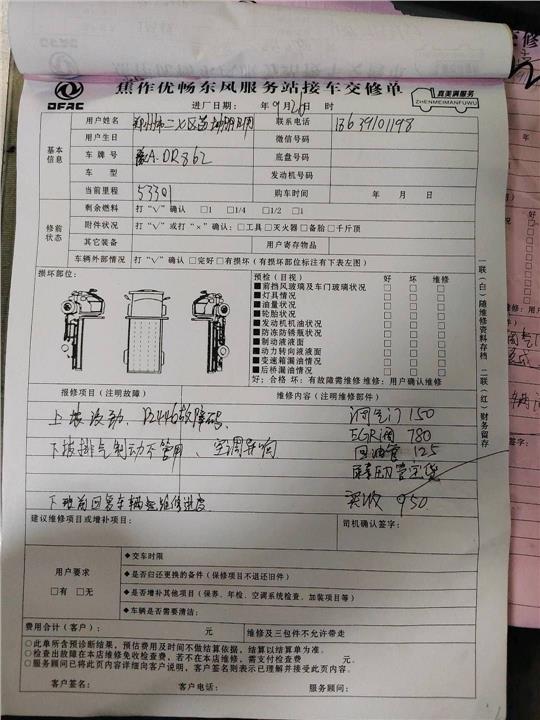 焦作优畅东风服务站接车交修单
DFAC
真美满服务
ZHENMEIMANFUWU
进厂日期: 年 9月26日 时
用户姓名 联系电话 13639101198
用户生日 微信号码
基本信息 车牌号 豫A.DR862 底盘号码
车 型 发动机号码
当前里程 53301 购车时间 年 月 日
剩余燃料 打"√"确认 □1 □1/4 □1/2 □1
修前状态 附件状况 打"√"或打"×"确认:□工具□灭火器□备胎□千斤顶
其它装备 用户寄存物品
车辆外部情况 打"√"确认 □完好□有损坏(有损坏部位标注有下表左图)
损坏部位: 预检(目视) 好 坏 维修
■前挡风玻璃及车门玻璃状况 □ □ □
■灯具情况 □ □ □
■油量状况 □ □ □
■轮胎状况 □ □ □
■发动机机油状况 □ □ □
■防冻防锈瓶状况 □ □ □
■制动液液面 □ □ □
■动力转向液液面 □ □ □
■变速箱漏油情况 □ □ □
■后桥漏油情况 □ □ □
好:合格 坏:有故障需维修 维修:用户确认维修
报修项目(注明故障) 维修内容(注明维修部件)
上坡没劲、P2446故障码 150
EGR阀 780
下坡排气制动不管用、空调异响 回油管 125
实收 950
下班前回复车辆维修进度
建议维修项目或增补项目: 司机确认签字:
用户要求
□有 □无
◆交车时限
◆是否归还更换的备件(保修项目不退还旧件)
◆是否增补其他项目(保养、年检、空调系统检查、加装项目等)
◆车辆是否需要清洁:
费用合计(客户): 元 维修及三包件不允许带走
○此单所含预诊断结果,预估费用及时间不做结算依据,结算以结算单为准。
○检查出故障在本店维修免收检查费,若不在本店维修,需支付检查费 元。
○服务顾问已将此页内容详细向客户说明,客户签名则表示已理解并接受此页内容。
客户签名: 客户电话: 服务顾问:
一联(白)随维修资料存档 二联(红)财务留存